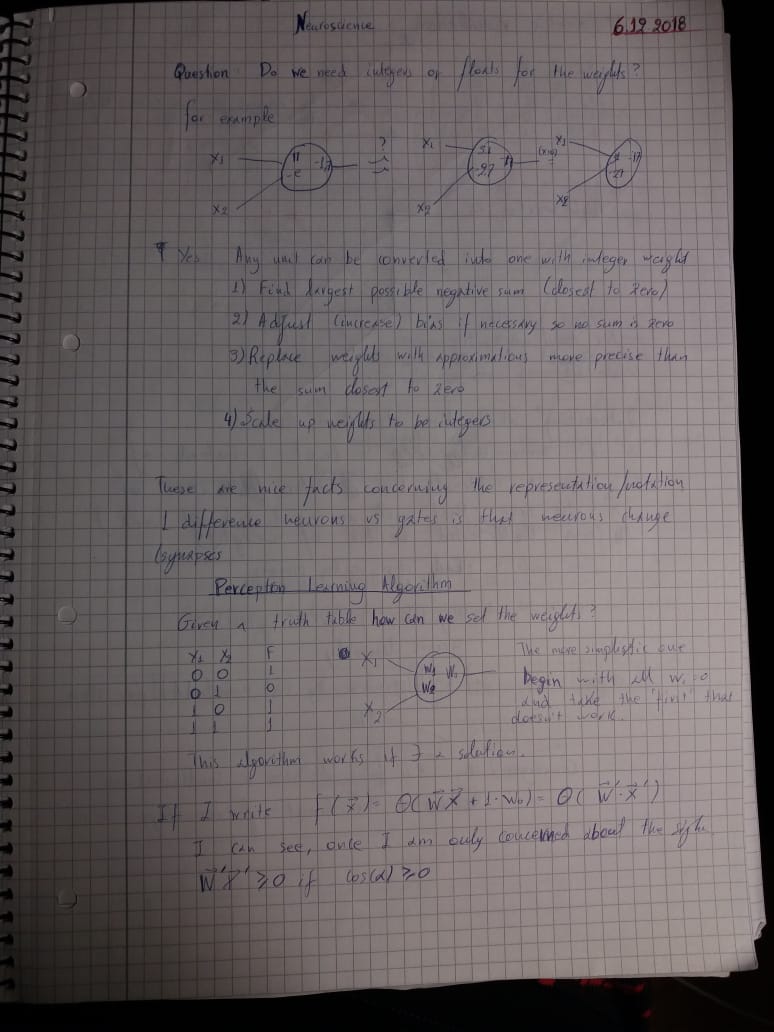 Neuroscience 6.12.2018
Question Do we need integers or floats for the weights?
for example
X1 X2 ? X1 X2 (x10) X1 X2
Yes Any unit can be converted into one with integer weight
1) Find largest possible negative sum (closest to zero)
2) Adjust (increase) bias if necessary so no sum is zero
3) Replace weights with approximations more precise than
the sum closest to zero
4) Scale up weights to be integers
These are nice facts concerning the representation/notation
1 difference neurons vs gates is that neurons change
(synapses
Perceptron Learning Algorithm
Given a truth table how can we set the weights?
X1 X2 F
0 0 1
0 1 0
1 0 1
1 1 1
X1 W1 W0
W2
X2
The more simplistic one
begin with all wi=0
and take the "first" that
doesn't work..
This algorithm works if ∃ a solution.
If I write f(x⃗)= Θ(W⃗X⃗ + 1·W0) = Θ(W⃗'·X⃗')
I can see, once I am only concerned about the sign
W⃗'X⃗' ⩾0 if cos(α) ⩾0